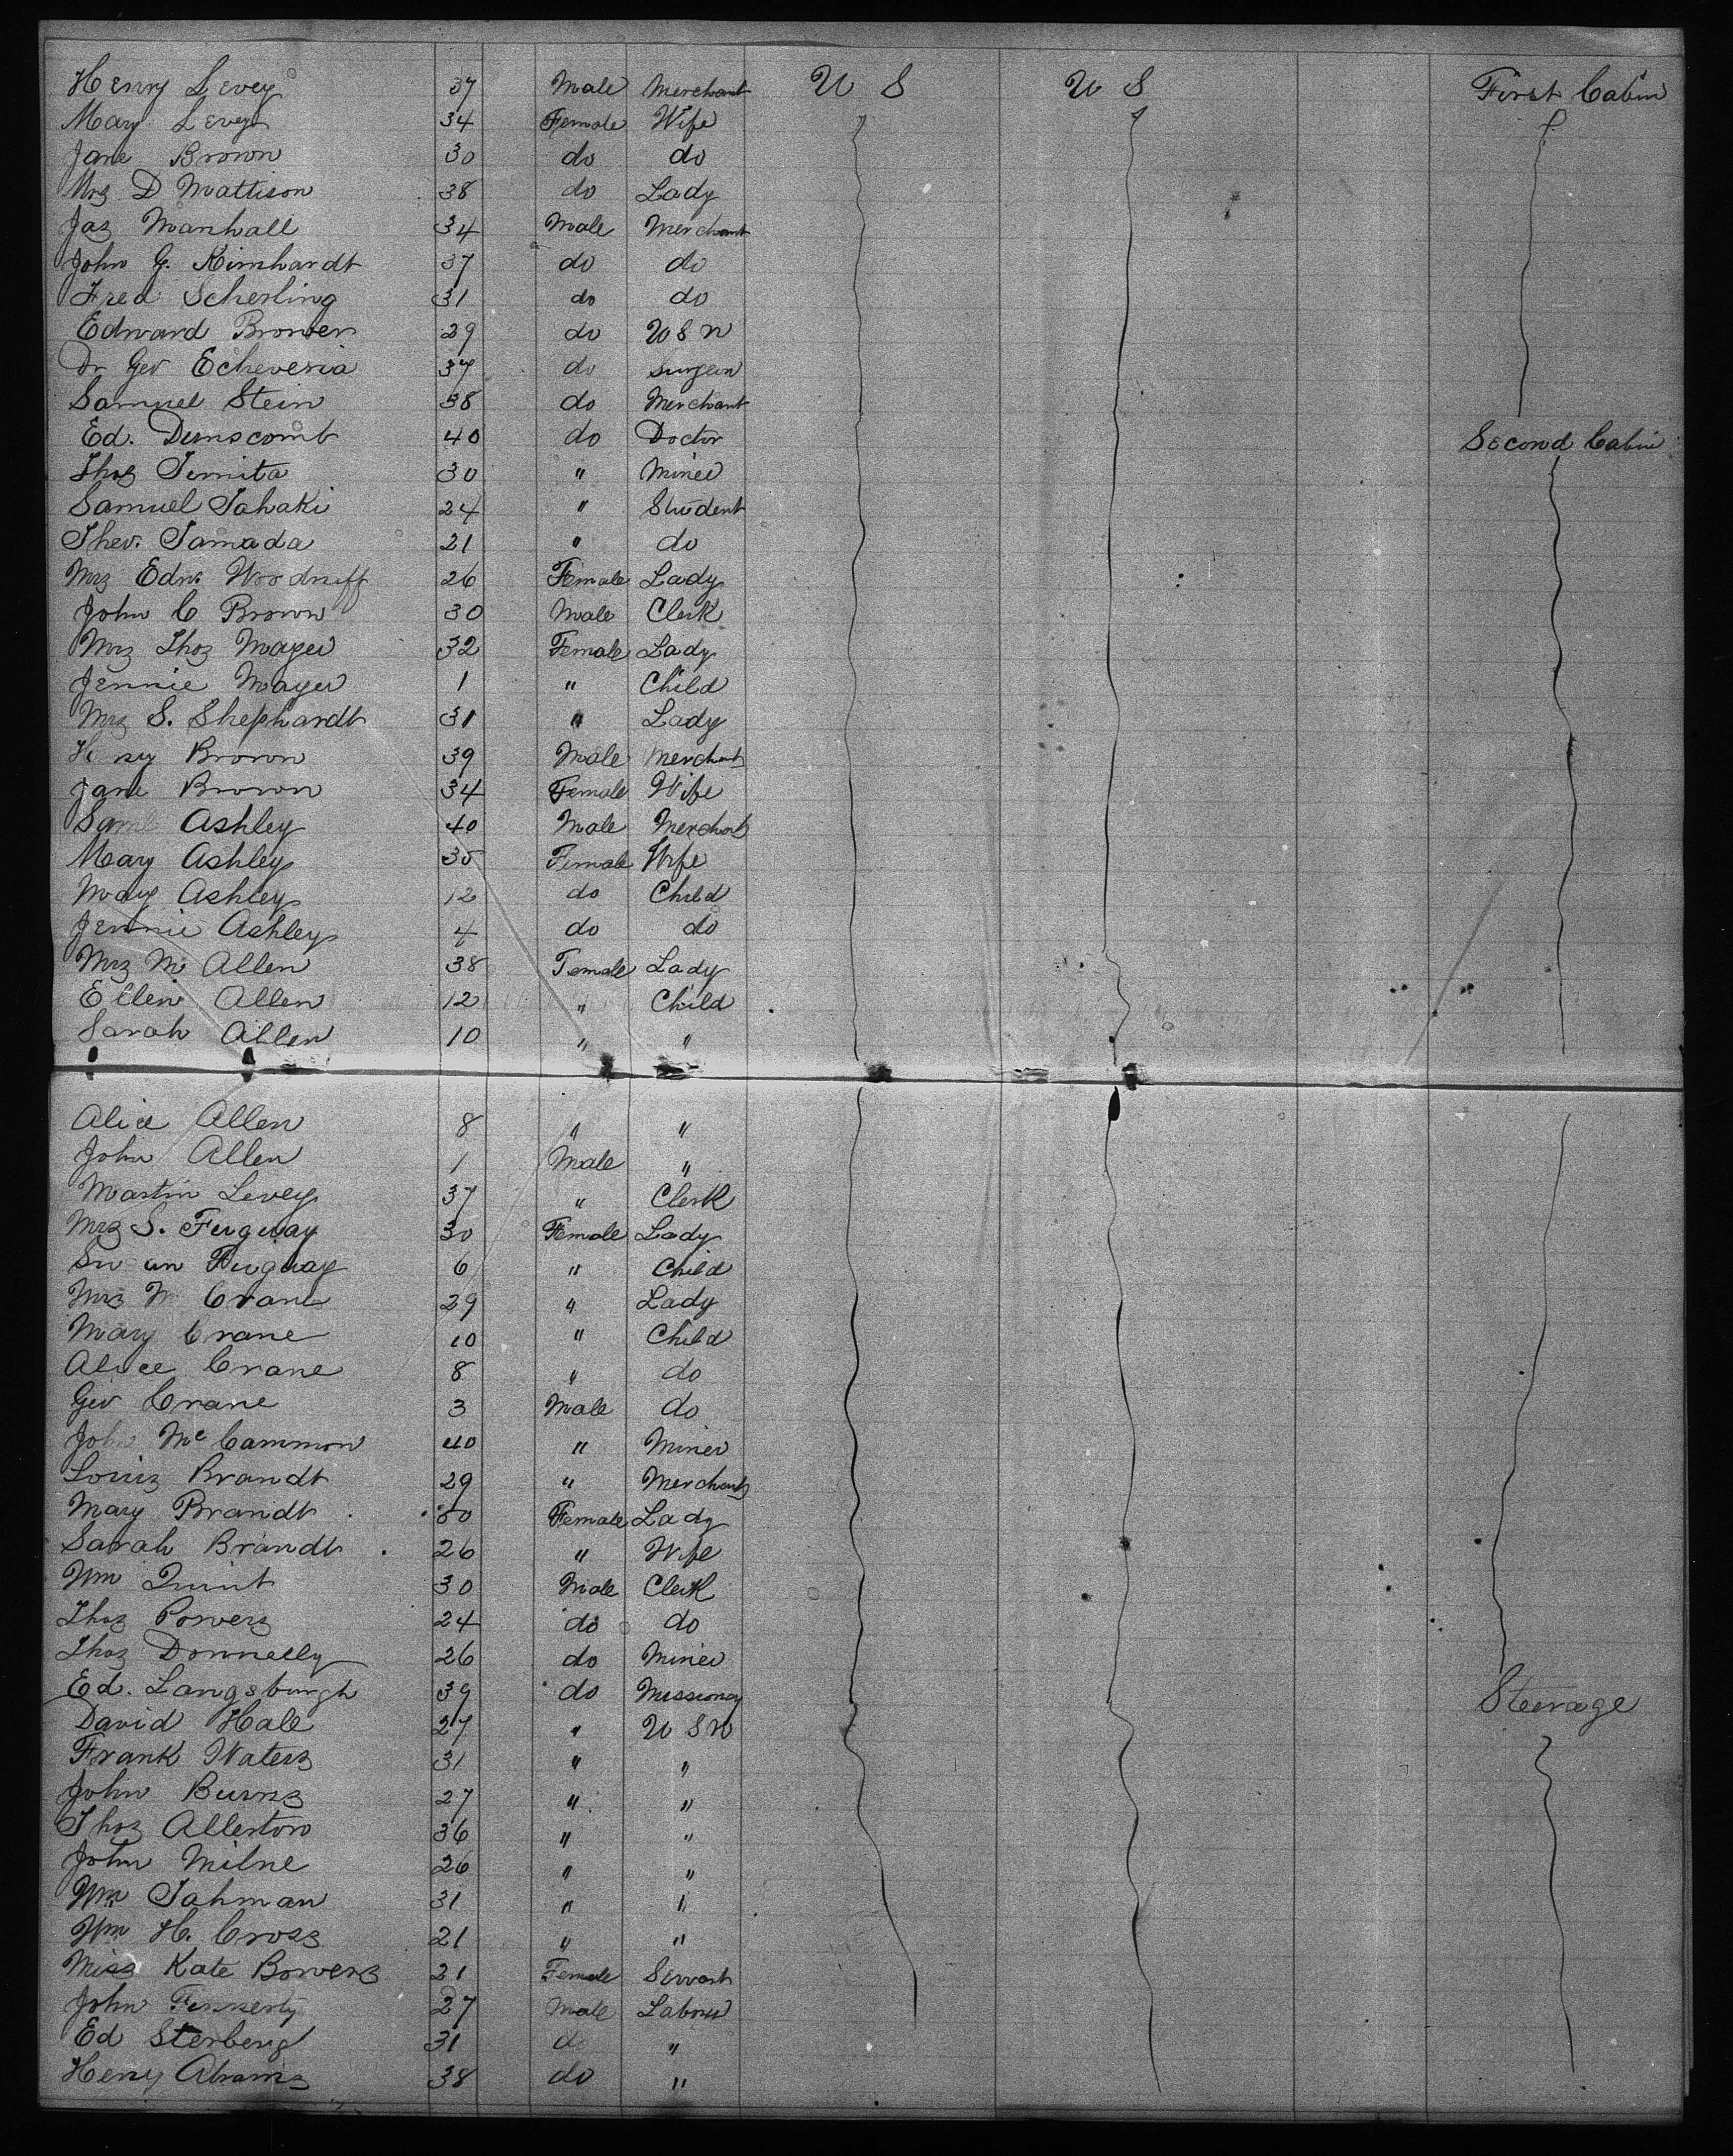 Henry Levey 37 Male Merchant U S U S First Cabin
Mary Levey 34 Female Wife
Jane Brown 30 do do
Mrs D Mattison 38 do Lady
Jas Marshall 34 Male Merchant
John G. Rimhardt 37 do do
Fred Scherling 31 do do
Edward Brower 29 do U S N
Dr Geo Echeveria 37 do Surgeon
Samuel Stein 38 do Merchant
Ed. Dunscomb 40 do Doctor Second Cabin
Thos Temita 30 " Miner
Samuel Tahaki 24 " Student
Theo. Tamada 21 " do
Mrs Edw. Woodruff 26 Female Lady
John C Brown 30 Male Clerk
Mrs Thos Mayer 32 Female Lady
Jennie Mayer 1 " Child
Mrs S. Shephardt 31 " Lady
Henry Brown 39 Male Merchant
Jane Brown 34 Female Wife
Saml Ashley 40 Male Merchant
Mary Ashley 35 Female Wife
Mary Ashley 12 do Child
Jennie Ashley 4 do do
Mrs M Allen 38 Female Lady
Ellen Allen 12 " Child
Sarah Allen 10 " "
Alice Allen 8 " "
John Allen 1 Male "
Martin Levey 37 " Clerk
Mrs S. Furguay 30 Female Lady
Susan Furguay 6 " Child
Mrs M Crane 29 " Lady
Mary Crane 10 " Child
Alice Crane 8 " do
Geo Crane 3 Male do
John McCammon 40 " Miner
Louis Brandt 29 " Merchant
Mary Brandt 50 Female Lady
Sarah Brandt 26 " Wife
Wm Quint 30 Male Clerk
Thos Powers 24 do do
Thos Donnelly 26 do Miner
Ed. Langsburgh 39 do Missionary Steerage
David Hale 27 " U S N
Frank Waters 31 " "
John Burns 27 " "
Thos Allerton 36 " "
John Milne 26 " "
Wm Tahman 31 " "
Wm H. Cross 21 " "
Miss Kate Bowers 21 Female Servant
John Finnerty 27 Male Laborer
Ed Sterberg 31 do "
Henry Abrams 38 do "